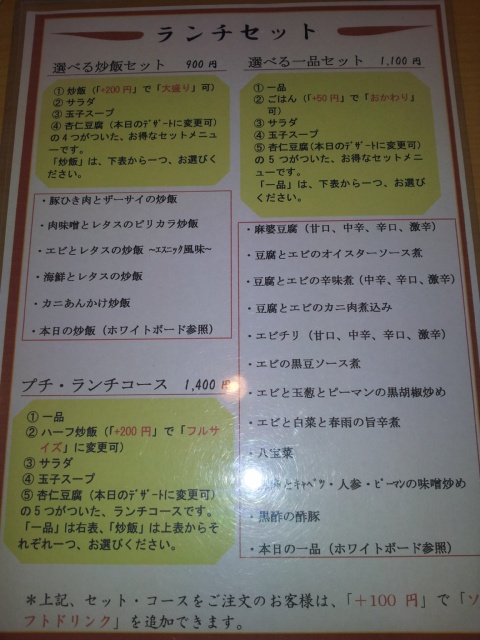 ランチセット
選べる炒飯セット 900円
① 炒飯(「+200円」で「大盛り」可)
② サラダ
③ 玉子スープ
④ 杏仁豆腐(本日のﾃﾞｻﾞｰﾄに変更可)
の4つがついた、お得なセットメニュ
ーです。
「炒飯」は、下表から一つ、お選びく
ださい。
・豚ひき肉とザーサイの炒飯
・肉味噌とレタスのピリカラ炒飯
・エビとレタスの炒飯 ～ｴｽﾆｯｸ風味～
・海鮮とレタスの炒飯
・カニあんかけ炒飯
・本日の炒飯(ホワイトボード参照)
プチ・ランチコース 1,400円
① 一品
② ハーフ炒飯(「+200円」で「フルサ
イズ」に変更可)
③ サラダ
④ 玉子スープ
⑤ 杏仁豆腐(本日のﾃﾞｻﾞｰﾄに変更可)
の5つがついた、ランチコースです。
「一品」は右表、「炒飯」は上表からそ
れぞれ一つ、お選びください。
選べる一品セット 1,100円
① 一品
② ごはん(「+50円」で「おかわり」
可)
③ サラダ
④ 玉子スープ
⑤ 杏仁豆腐(本日のﾃﾞｻﾞｰﾄに変更可)
の5つがついた、お得なセットメニュ
ーです。
「一品」は、下表から一つ、お選びく
ださい。
・麻婆豆腐(甘口、中辛、辛口、激辛)
・豆腐とエビのオイスターソース煮
・豆腐とエビの辛味煮(中辛、辛口、激辛)
・豆腐とエビのカニ肉煮込み
・エビチリ(甘口、中辛、辛口、激辛)
・エビの黒豆ソース煮
・エビと玉葱とピーマンの黒胡椒炒め
・エビと白菜と春雨の旨辛煮
・八宝菜
肉とｷｬﾍﾞﾂ・人参・ﾋﾟｰﾏﾝの味噌炒め
・黒酢の酢豚
・本日の一品(ホワイトボード参照)
＊上記、セット・コースをご注文のお客様は、「＋100円」で「ソ
フトドリンク」を追加できます。